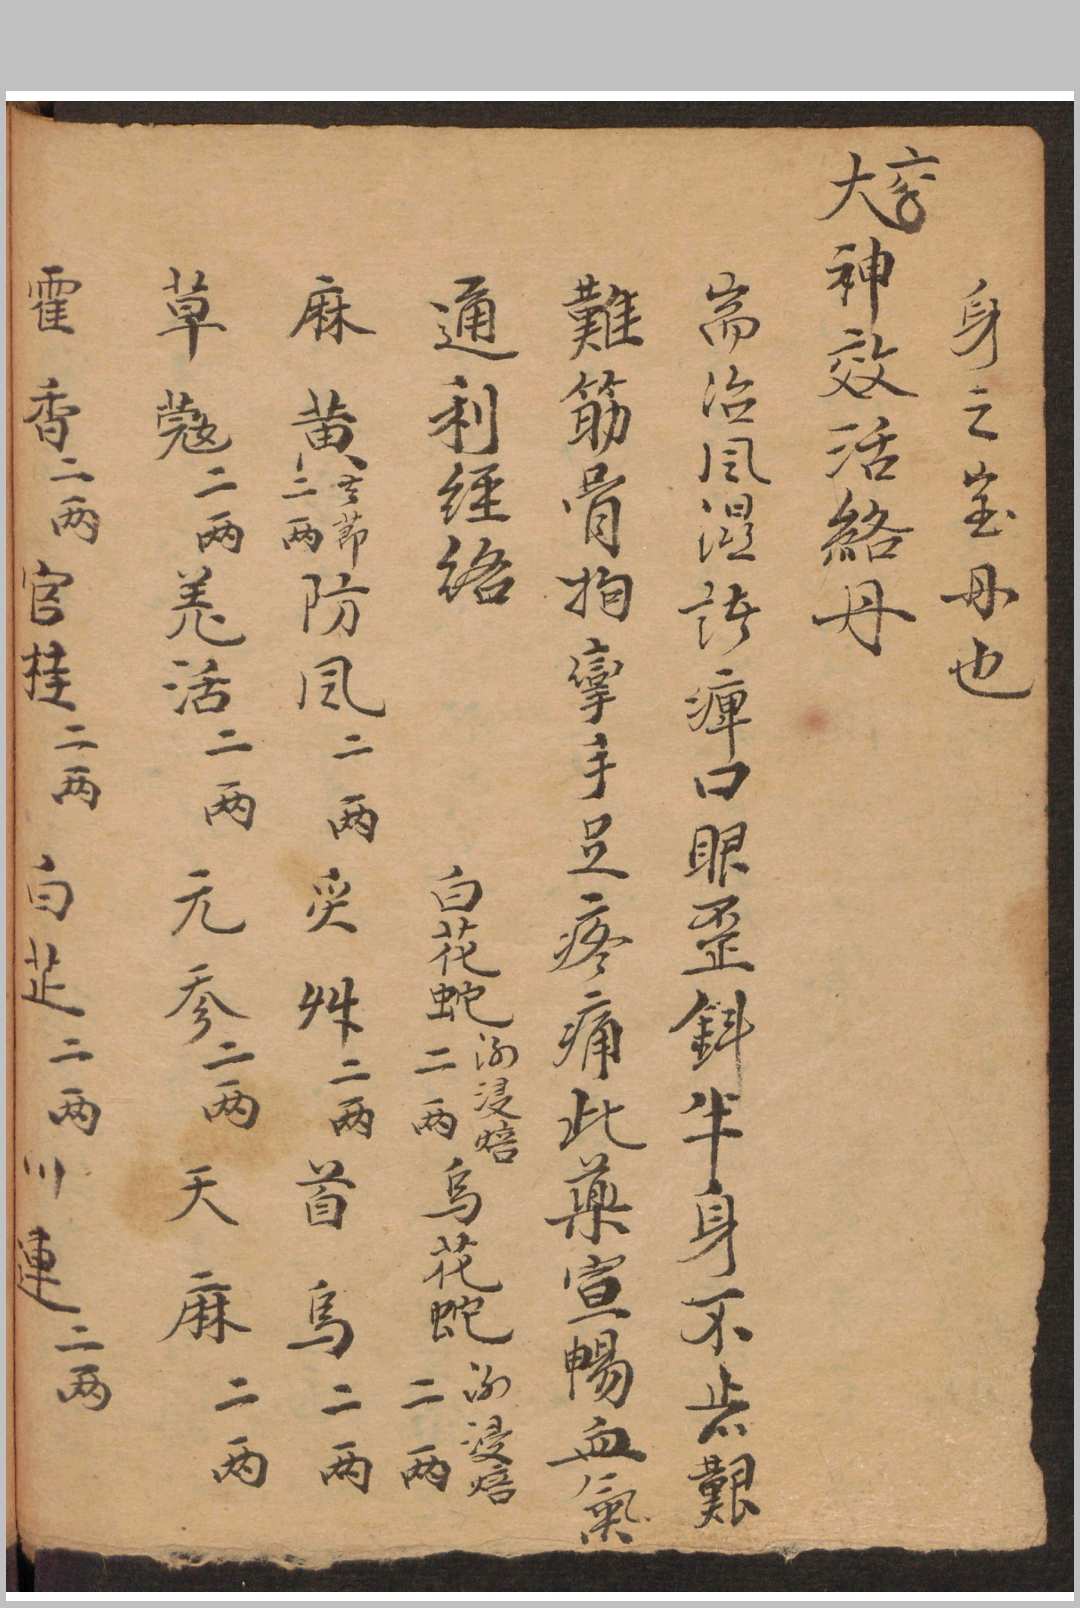 身之宝丹也
大神效活絡丹
耑治风濕諸痺口眼歪斜半身不遂艱
難筋骨拘攣手足疼痛此藥宣暢血氣
通利經絡
白花蛇二两酒浸焙 烏花蛇二两酒浸焙
麻黄去節二两 防风二两 炙艸二两 首烏二两
草蔻二两 羗活二两 元參二两 天麻二两
霍香二两 官桂二两 白芷二两 川連二两